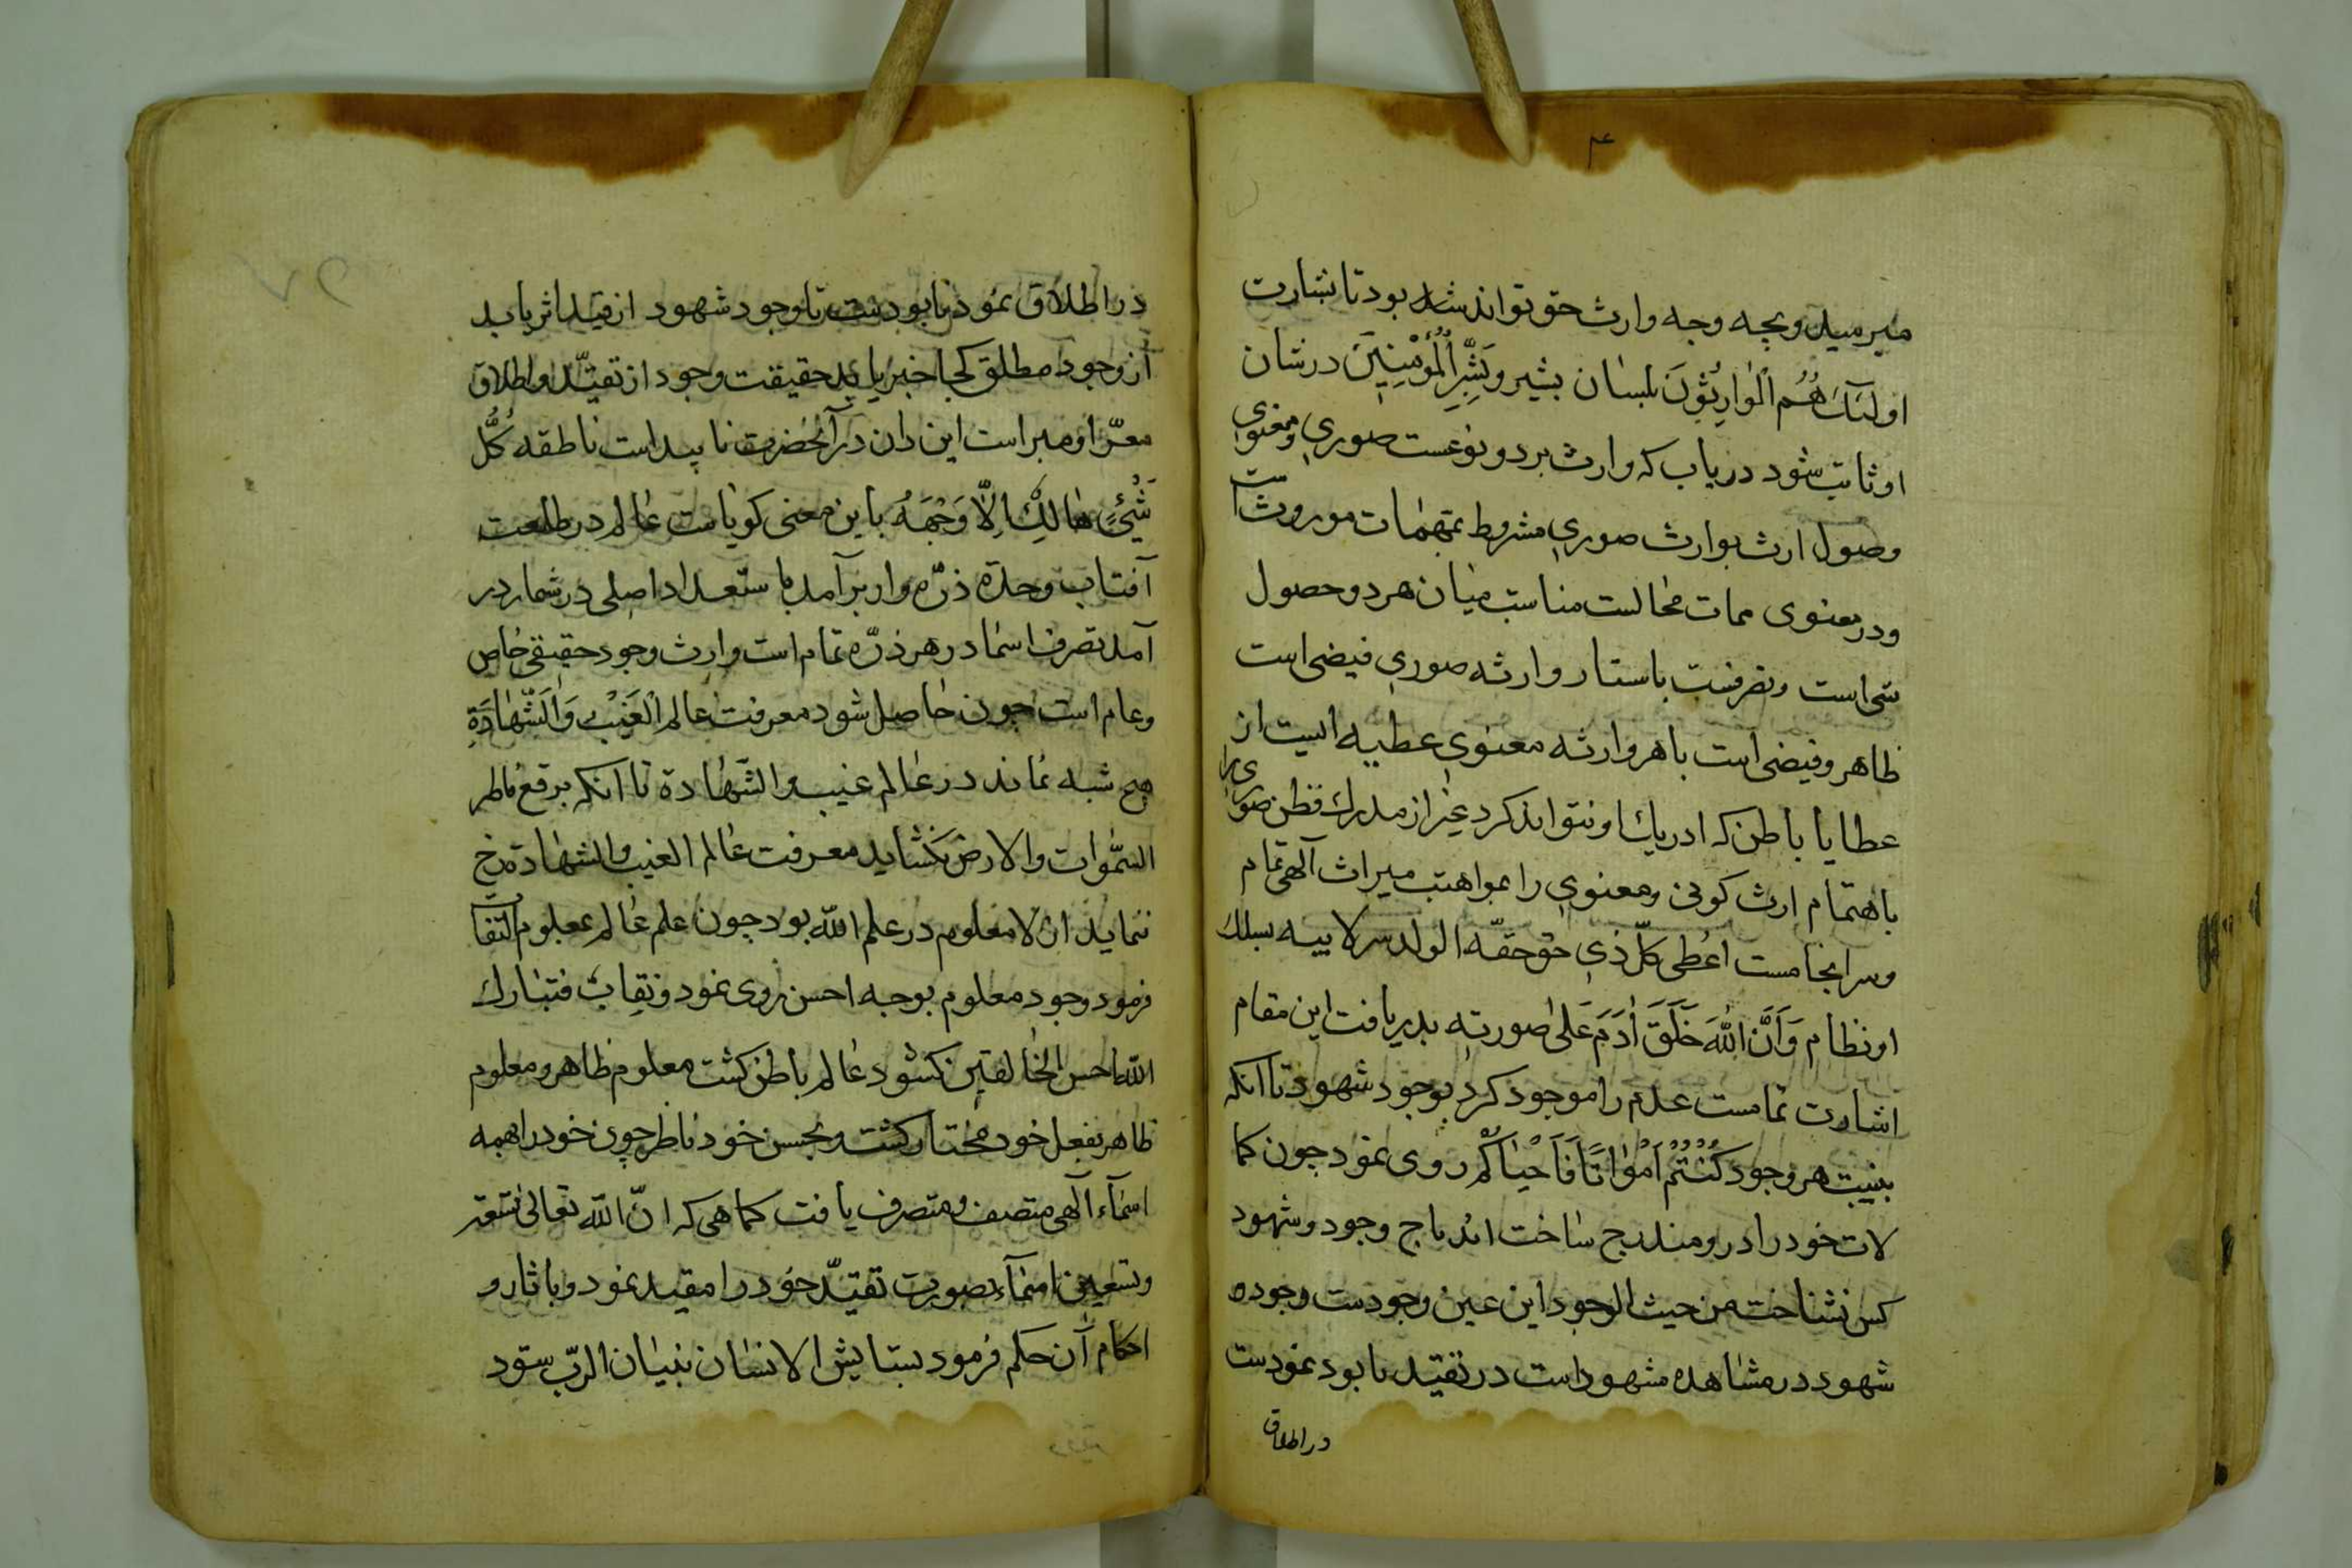 میرسید وبچه وجه وارث حق تواند شد بود تا بشارت
اولئک هُمُ الْوٰارِثُوْنَ بلسان بشیر وَبَشِّرِ الْمُؤْمِنِیْنَ درشان
او ثابت شود دریاب که وارث بر دو نوعست صوری ومعنوی
وصول ارث بوارث صوری مشروط بمهمات موروثست
ودر معنوی ممات محالست مناسبت میان هر دو حصول
است وتصرفست باستار وارثه صوری فیضی است
ظاهر وفیضی است باهر وارثه معنوی عطیه ایست از
عطایا باطن که ادریاک او نتواند کرد غیر از مدرک فطن صوری را
باهتمام ارث کونی ومعنوی را بمواهبت میراث آلهی تمام
وسرانجامست اعُطی کلّ ذی حق حقّه الولد سر لابیه بسلک
او نظام وَاَنَّ اللّٰهَ خَلَقَ اٰدَمَ عَلیٰ صورته بدریافت این مقام
اشارت تمامست عدم را موجود کرد بوجود شهود تا انکه
هر وجود کُنْتُمْ اَمْوٰاتًا فَاَحْیٰاکُمْ روی نمود چون کما
لات خود را درو مندرج ساخت اند باج وجود وشهود
کس نشناخت من حیث الوجود این عین وجودست وجوده
شهود در مشاهده مشهود است در تقیّد نابود نمودست
در اطلاق
در اطلاق نمود نابودست تا وجود شهود از قید اثر یابد
از وجود مطلق کجا خبر یابد حقیقت وجود از تقیّد واطلاق
معرّا ومبراست این دان در آنحضرت ناپیداست ناطقه کُلُّ
شَیْئٍ هٰالِکٌ اِلّٰا وَجْهَهُ باین معنی کویاست عٰالم در طلعت
آفتاب وحدة ذرّه وار بر آمد با ستعداد اصلی در شمار در
آمد تصرف اسما در هر ذرّه تمام است وارث وجود حقیقی خاص
وعام است چون حٰاصل شود معرفت عالم الْغَیْبِ وَالشَّهٰادَةِ
هیچ شبه نماند در عٰالم غیب والشّهادة تا انکه برقع فاطر
السّمٰوات والارض نکشاید معرفت عٰالم الغیب والشهادة رخ
ننماید ان لا معلوم در علم الله بود چون علم عٰالم بمعلوم التفا
فرمود وجود معلوم بوجه احسن روی نمود ونقاب فتبٰارک
اللّه احسن الخٰالقین نکشود عٰالم باطن کشت معلوم ظاهر ومعلوم
ظاهر بفعل خود مختار کشت وبحسن خود ناظر چون خود را همه
اسمٰآء آلهی متصف ومتصرف یافت کماهی که انّ اللّه تعالیٰ تسعة
وتسعین اسمآء بصورت تقیّد خود را مقید نمود وباثار و
احکام آن حکم فرمود بستایش الانسٰان بنیٰان الربّ ستود